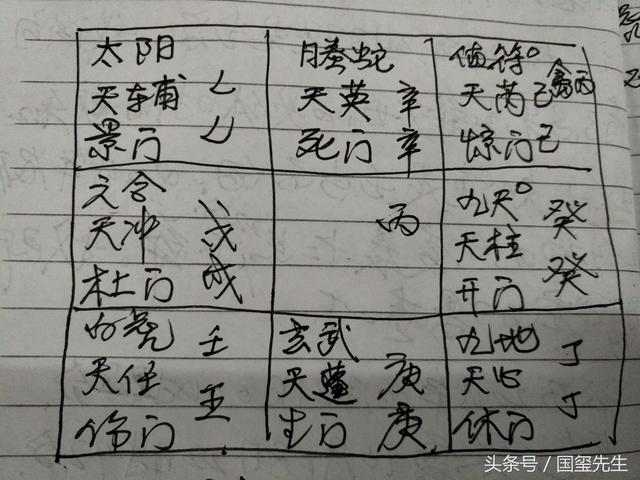 太阳
天辅 乙
景门 乙
螣蛇
天英 辛
死门 辛
值符°
天芮己 禽丙
惊门己
六合
天冲 戊
杜门 戊
丙
九天° 癸
天柱
开门 癸
白虎 壬
天任 壬
伤门
玄武
天蓬 庚
生门 庚
九地 丁
天心 丁
休门
头条号 / 国玺先生